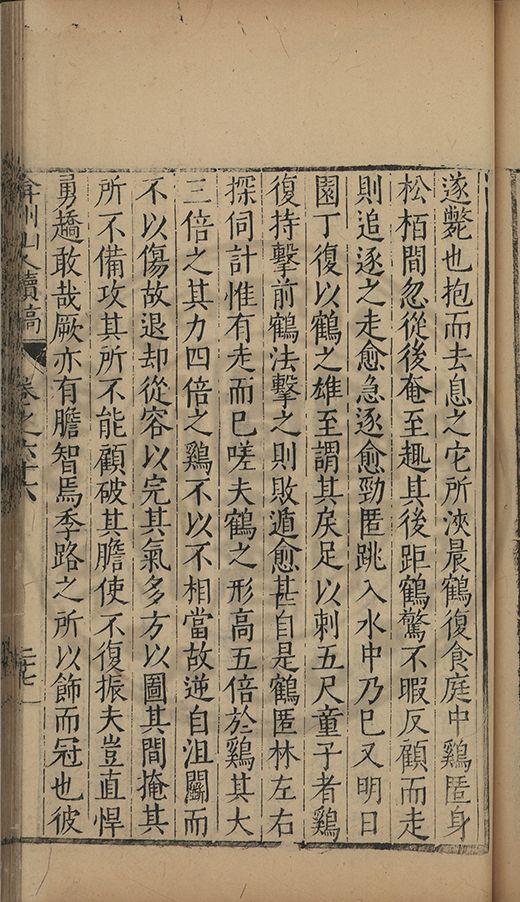 遂斃也抱而去息之它所浹晨鶴復食庭中鷄匿身
松栢間忽從後奄至趣其後距鶴驚不暇反顧而走
則追逐之走愈急逐愈勁匿跳入水中乃巳又明日
園丁復以鶴之雄至謂其矦足以刺五尺童子者鷄
復持擊前鶴法擊之則敗遁愈甚自是鶴匿林左右
探伺計惟有走而巳嗟夫鶴之形高五倍於鷄其大
三倍之其力四倍之鷄不以不相當故逆自沮鬬而
不以傷故退却從容以完其氣多方以圖其間掩其
所不備攻其所不能顧破其膽使不復振夫豈直悍
勇趫敢哉厥亦有膽智焉季路之所以飾而冠也彼
弇州山人續稿 卷之六十六 二十七